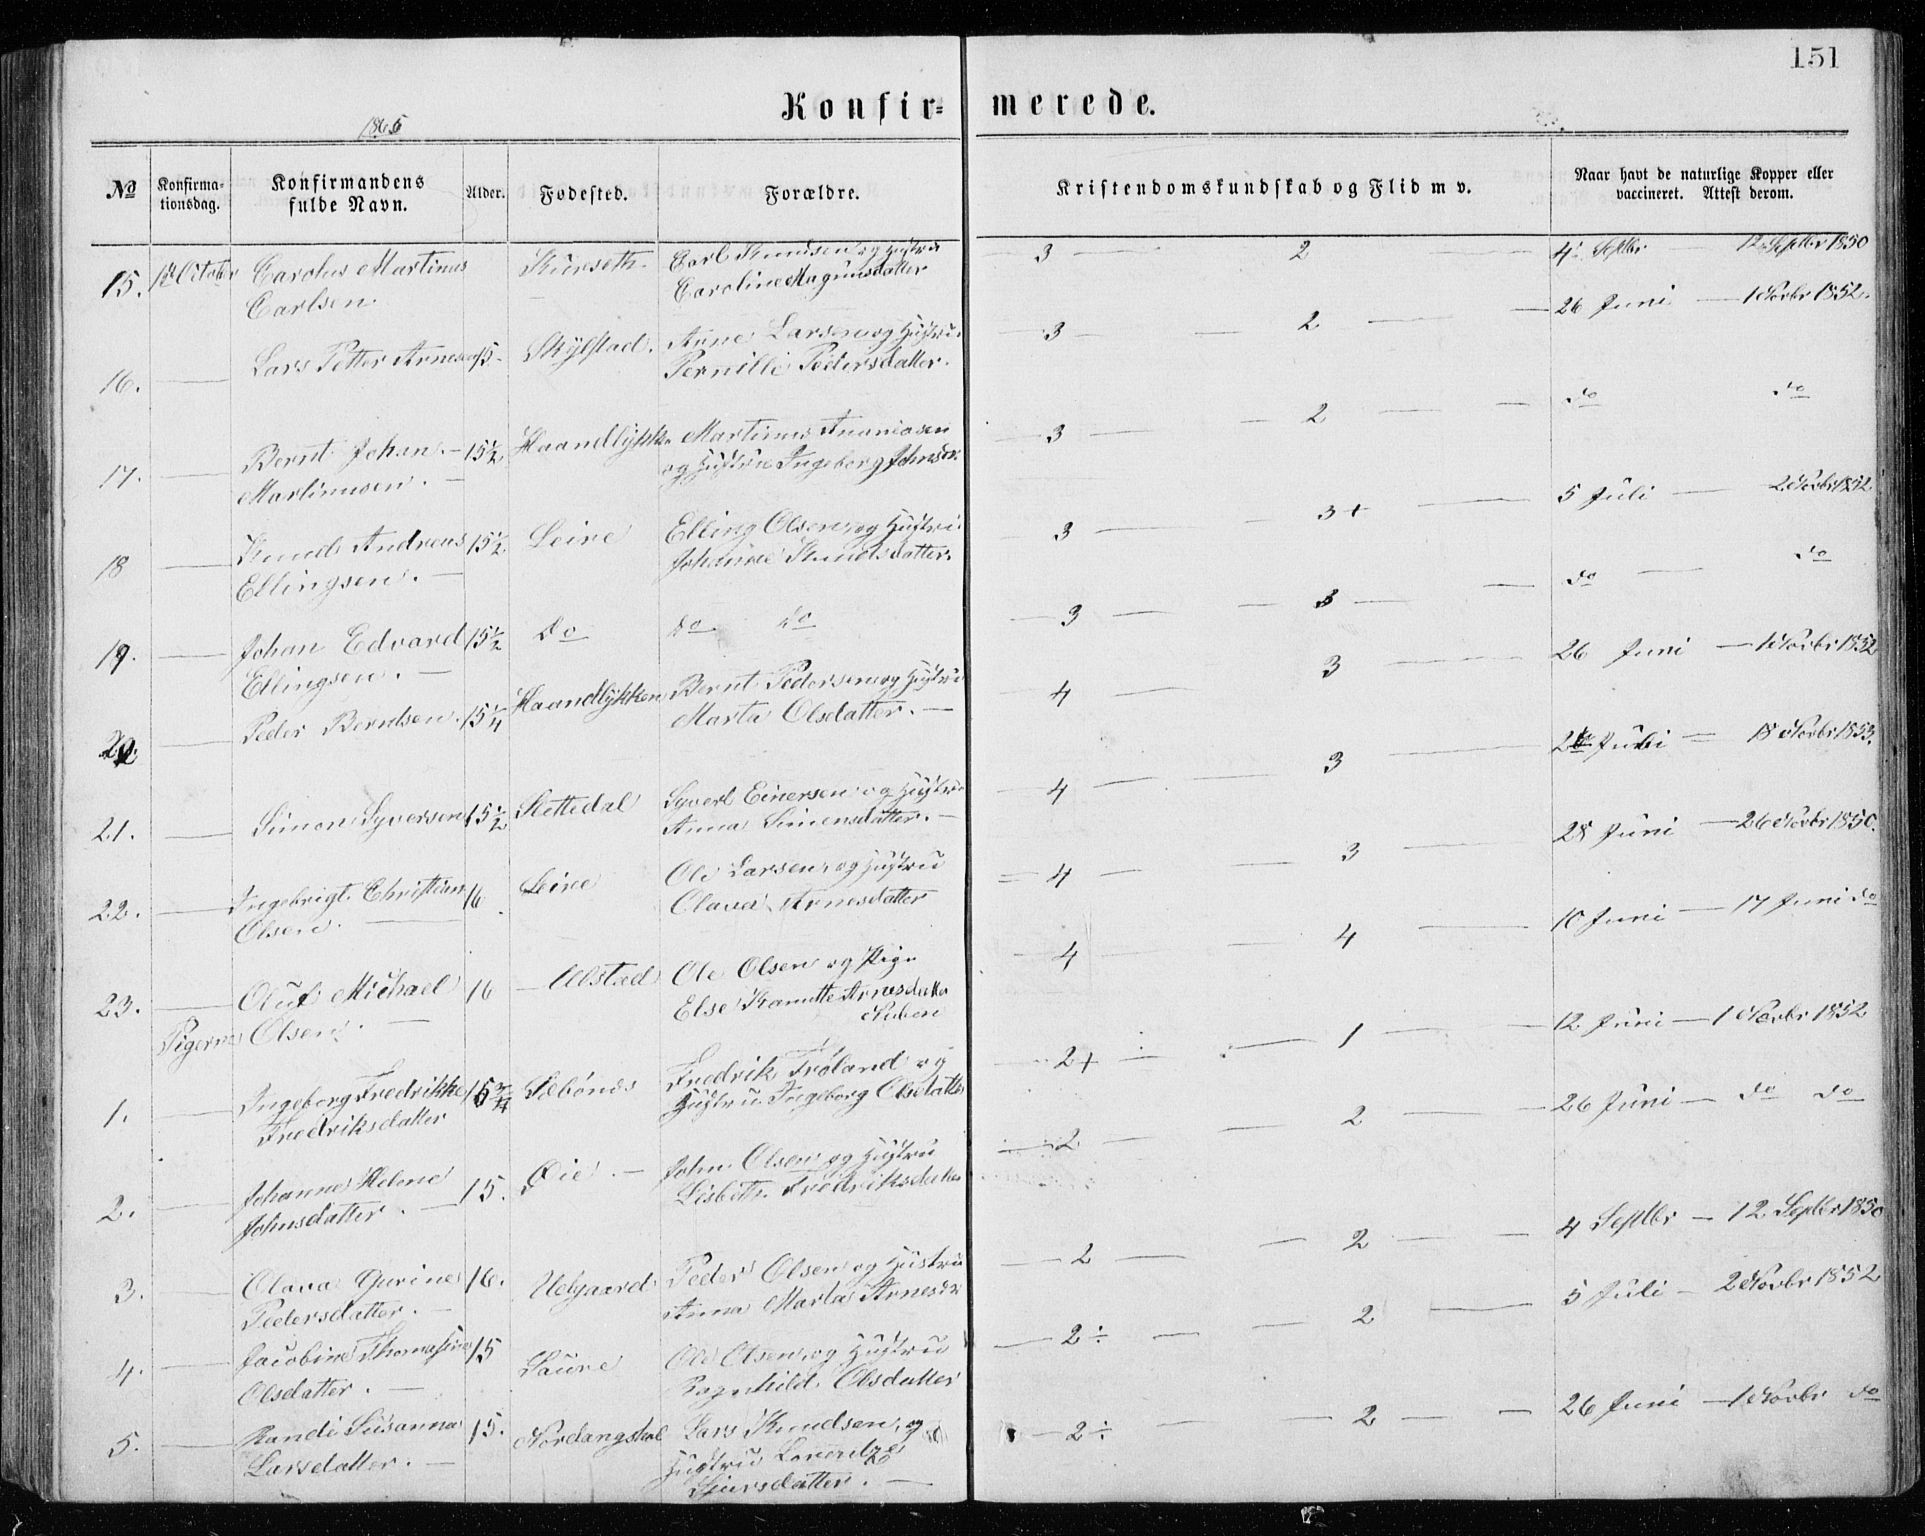 151
Konfir= merede.
1865
No
Konfirma-
tionsdag.
Konfirmandens
fulde Navn.
Alder.
Fødested.
Forældre.
Kristendomskundskab og Flid m v.
Naar havt de naturlige Kopper eller
vaccineret. Attest derom.
15. October Carolus Martinus Carl Knudsen og Hustru 3 — 2 4 Septbr — 12 Septbr 1850
Carlsen. Caroline Magnusdatter
16. — Lars Petter Arnesen 15 Skylstad. Arne Larsen og Hustru 3 — 2 — 26 Juni — 1 Novbr 1852.
Pernille Pedersdatter.
17. — Bernt Johan 15½ Haandlykk Martinus Ananiasen 3 — 2 — do do
Martinusen. og Hustru Ingeborg Johnsdr
18 — Knud Andreas 15½ Leire Elling Olsen og Hustru 3 — 3+ — 5 Juli — 2 Novbr 1852
Ellingsen. Johanne Knudsdatter.
19. — Johan Edvard 15½ do do do 3 — 3 — do — do
Ellingsen.
20 — Peder Berntsen. 15¼ Haandlykken Bernt Pedersen og Hustru 4 — 3 — 26 Juni — 1 Novbr 1852
Marta Olsdatter.
21. — Simon Syversen 15½ Slettedal Syvert Einersen og Hustru 4 — 3 — Juli — 18 Novbr 1853.
Anna Simensdatter.
22. — Ingebrigt Christian 16 Leire Ole Larsen og Hustru 4 — 3 — 28 Juni — 26 Novbr 1850.
Olsen. Olava Arnesdatter
23. — Oluf Michael 16 Ole Olsen og Pige 4 — 4 — 10 Juni — 17 Juni do
Olsen. Else Arnesdatter
Pigerne
1. — Ingeborg Fredrikke 15¾ Sæbønes Fredrik Frøland og 2+ — 1 — 12 Juni — 1 Novbr 1852
Fredriksdatter Hustru Ingeborg Olsdatter
2. — Johanne Helene 15. Øie. — John Olsen og Hustru 2 — 2 — 26 Juni — do do
Johnsdatter. Lisbeth Fredriksdatter
3. — Olava Gurine 16. Urlgaard Peder Olsen og Hustru 2 — 2 — 4 Septbr — 12 Septbr 1850
Pedersdatter. Anna Marta Arnesdr
4. — Jacobine Thomasine 15 Saure Ole Olsen og Hustru 2÷ — 2 — 5 Juli — 2 Novbr 1852
Olsdatter. Ragnhild Olsdatter
5. — Randi Susanna 15. Nordangsdal Lars Knudsen og 2÷ — 2 — 26 Juni — 1 Novbr do
Larsdatter. Hustru
Sjursdatter.